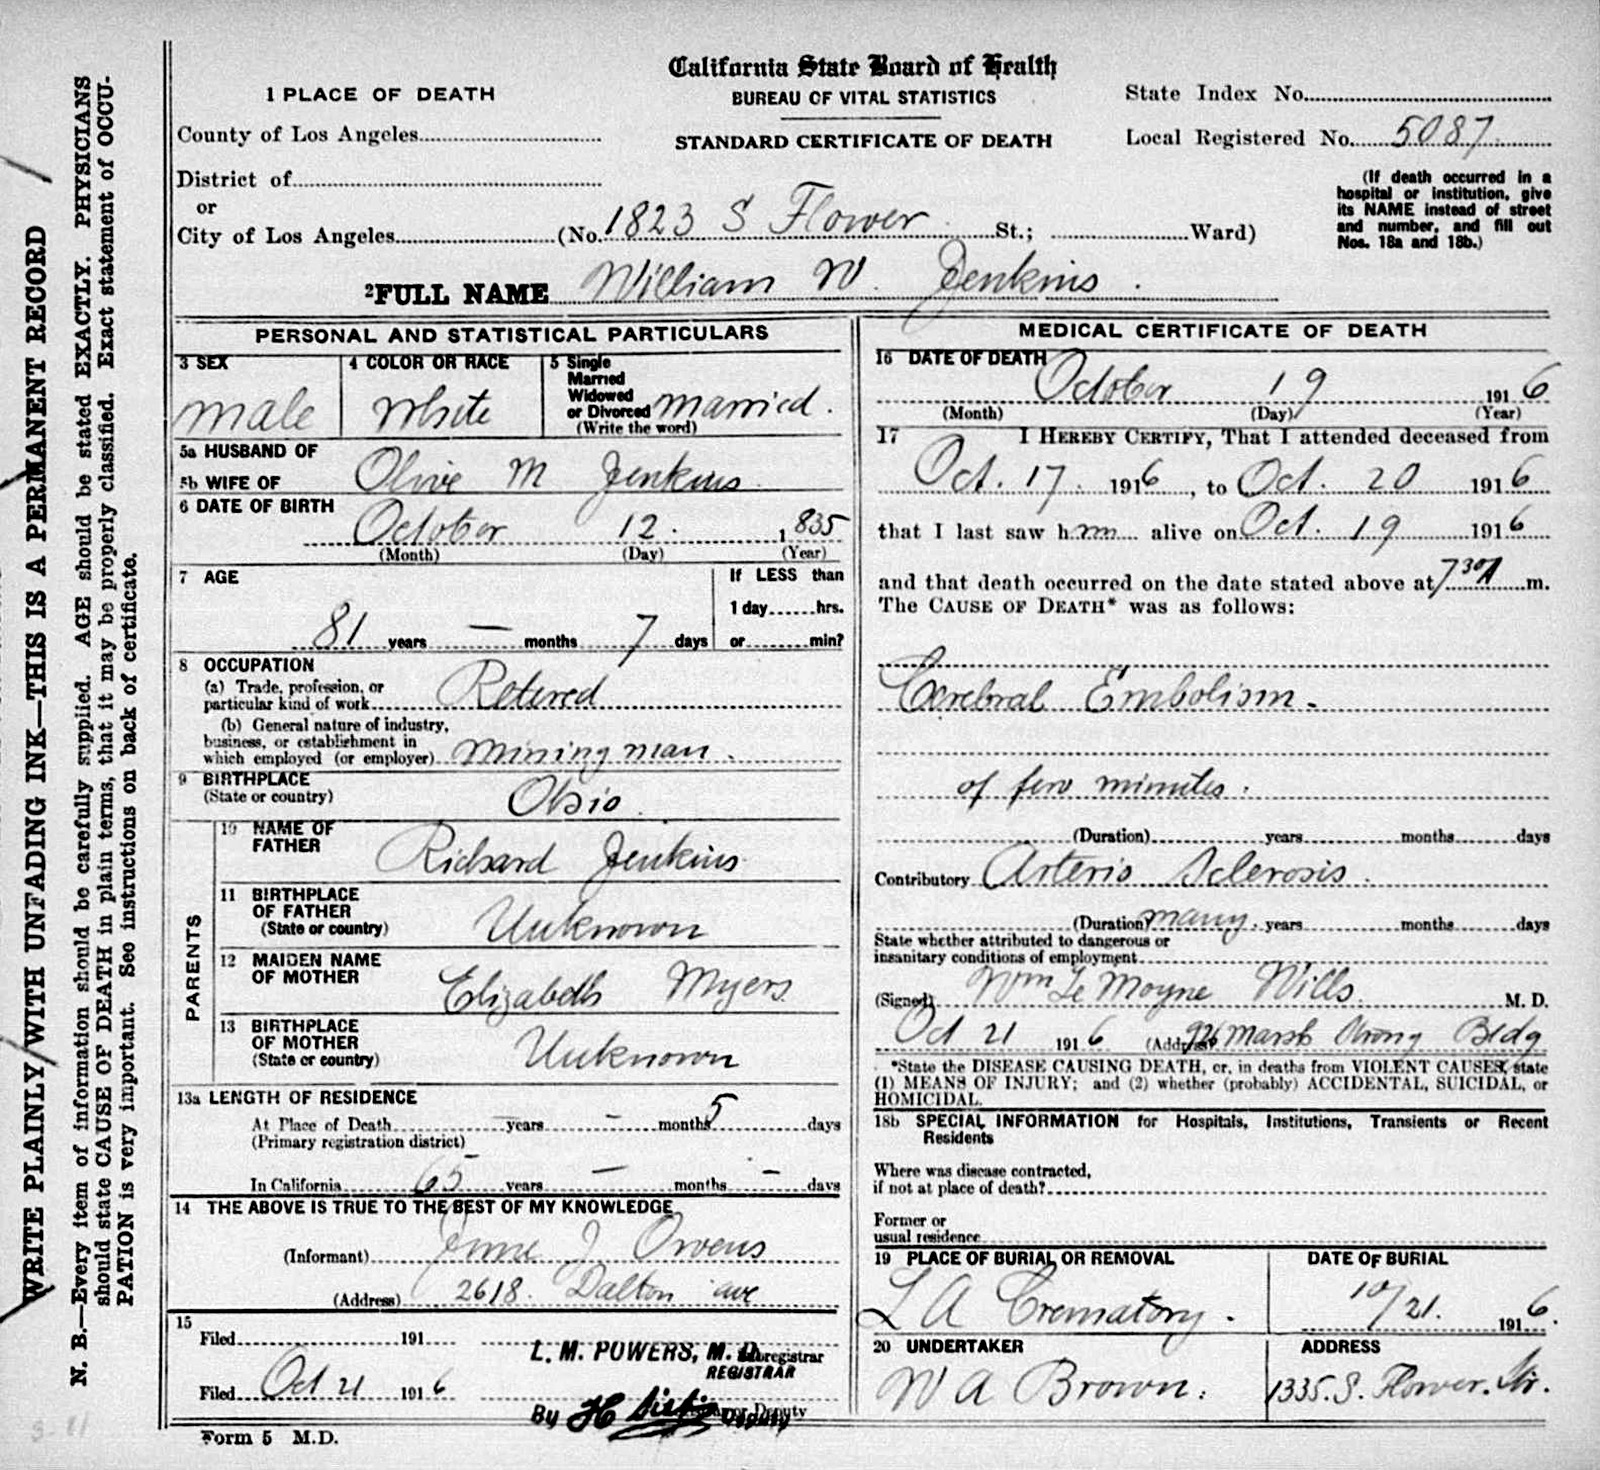 California State Board of Health
BUREAU OF VITAL STATISTICS
STANDARD CERTIFICATE OF DEATH
1 PLACE OF DEATH
County of Los Angeles
District of
or
City of Los Angeles (No. 1823 S Flower St.; Ward)
State Index No.
Local Registered No. 5087
(If death occurred in a
hospital or institution, give
its NAME instead of street
and number, and fill out
Nos. 18a and 18b.)
2 FULL NAME William W. Jenkins.
PERSONAL AND STATISTICAL PARTICULARS
3 SEX
male
4 COLOR OR RACE
White
5 Single
Married
Widowed
or Divorced married.
(Write the word)
5a HUSBAND OF
5b WIFE OF Olive M Jenkins.
6 DATE OF BIRTH
October 12. 1835
(Month) (Day) (Year)
7 AGE
81 years — months 7 days
If LESS than
1 day hrs.
or min?
8 OCCUPATION
(a) Trade, profession, or
particular kind of work Retired
(b) General nature of industry,
business, or establishment in
which employed (or employer) mining man.
9 BIRTHPLACE
(State or country) Ohio.
PARENTS
10 NAME OF
FATHER Richard Jenkins
11 BIRTHPLACE
OF FATHER
(State or country) Unknown
12 MAIDEN NAME
OF MOTHER Elizabeth Myers
13 BIRTHPLACE
OF MOTHER
(State or country) Unknown
13a LENGTH OF RESIDENCE
At Place of Death — years — months 5 days
(Primary registration district)
In California 65 years — months — days
14 THE ABOVE IS TRUE TO THE BEST OF MY KNOWLEDGE
(Informant) J Owens
(Address) 2618. Dalton ave
15
Filed 191
L. M. POWERS, M. D.
Subregistrar
REGISTRAR
Filed Oct 21 1916
By H Deputy
Form 5 M.D.
MEDICAL CERTIFICATE OF DEATH
16 DATE OF DEATH October 19 1916
(Month) (Day) (Year)
17 I HEREBY CERTIFY, That I attended deceased from
Oct. 17. 1916, to Oct. 20 1916
that I last saw him alive on Oct. 19 1916
and that death occurred on the date stated above at 7 30 A m.
The CAUSE OF DEATH* was as follows:
Cerebral Embolism.
of few minutes.
(Duration) years months days
Contributory Arterio Sclerosis.
(Duration) many. years months days
State whether attributed to dangerous or
insanitary conditions of employment
(Signed) Wm Le Moyne Wills. M. D.
Oct 21 1916 (Address) 926 Marsh Strong Bldg
*State the DISEASE CAUSING DEATH, or, in deaths from VIOLENT CAUSES, state
(1) MEANS OF INJURY; and (2) whether (probably) ACCIDENTAL, SUICIDAL, or
HOMICIDAL.
18b SPECIAL INFORMATION for Hospitals, Institutions, Transients or Recent
Residents
Where was disease contracted,
if not at place of death?
Former or
usual residence
19 PLACE OF BURIAL OR REMOVAL
L A Crematory.
DATE OF BURIAL
10/21. 1916.
20 UNDERTAKER
W A Brown.
ADDRESS
1335. S. Flower. Str.
WRITE PLAINLY WITH UNFADING INK—THIS IS A PERMANENT RECORD
N. B.—Every item of information should be carefully supplied. AGE should be stated EXACTLY. PHYSICIANS
should state CAUSE OF DEATH in plain terms, that it may be properly classified. Exact statement of OCCU-
PATION is very important. See instructions on back of certificate.